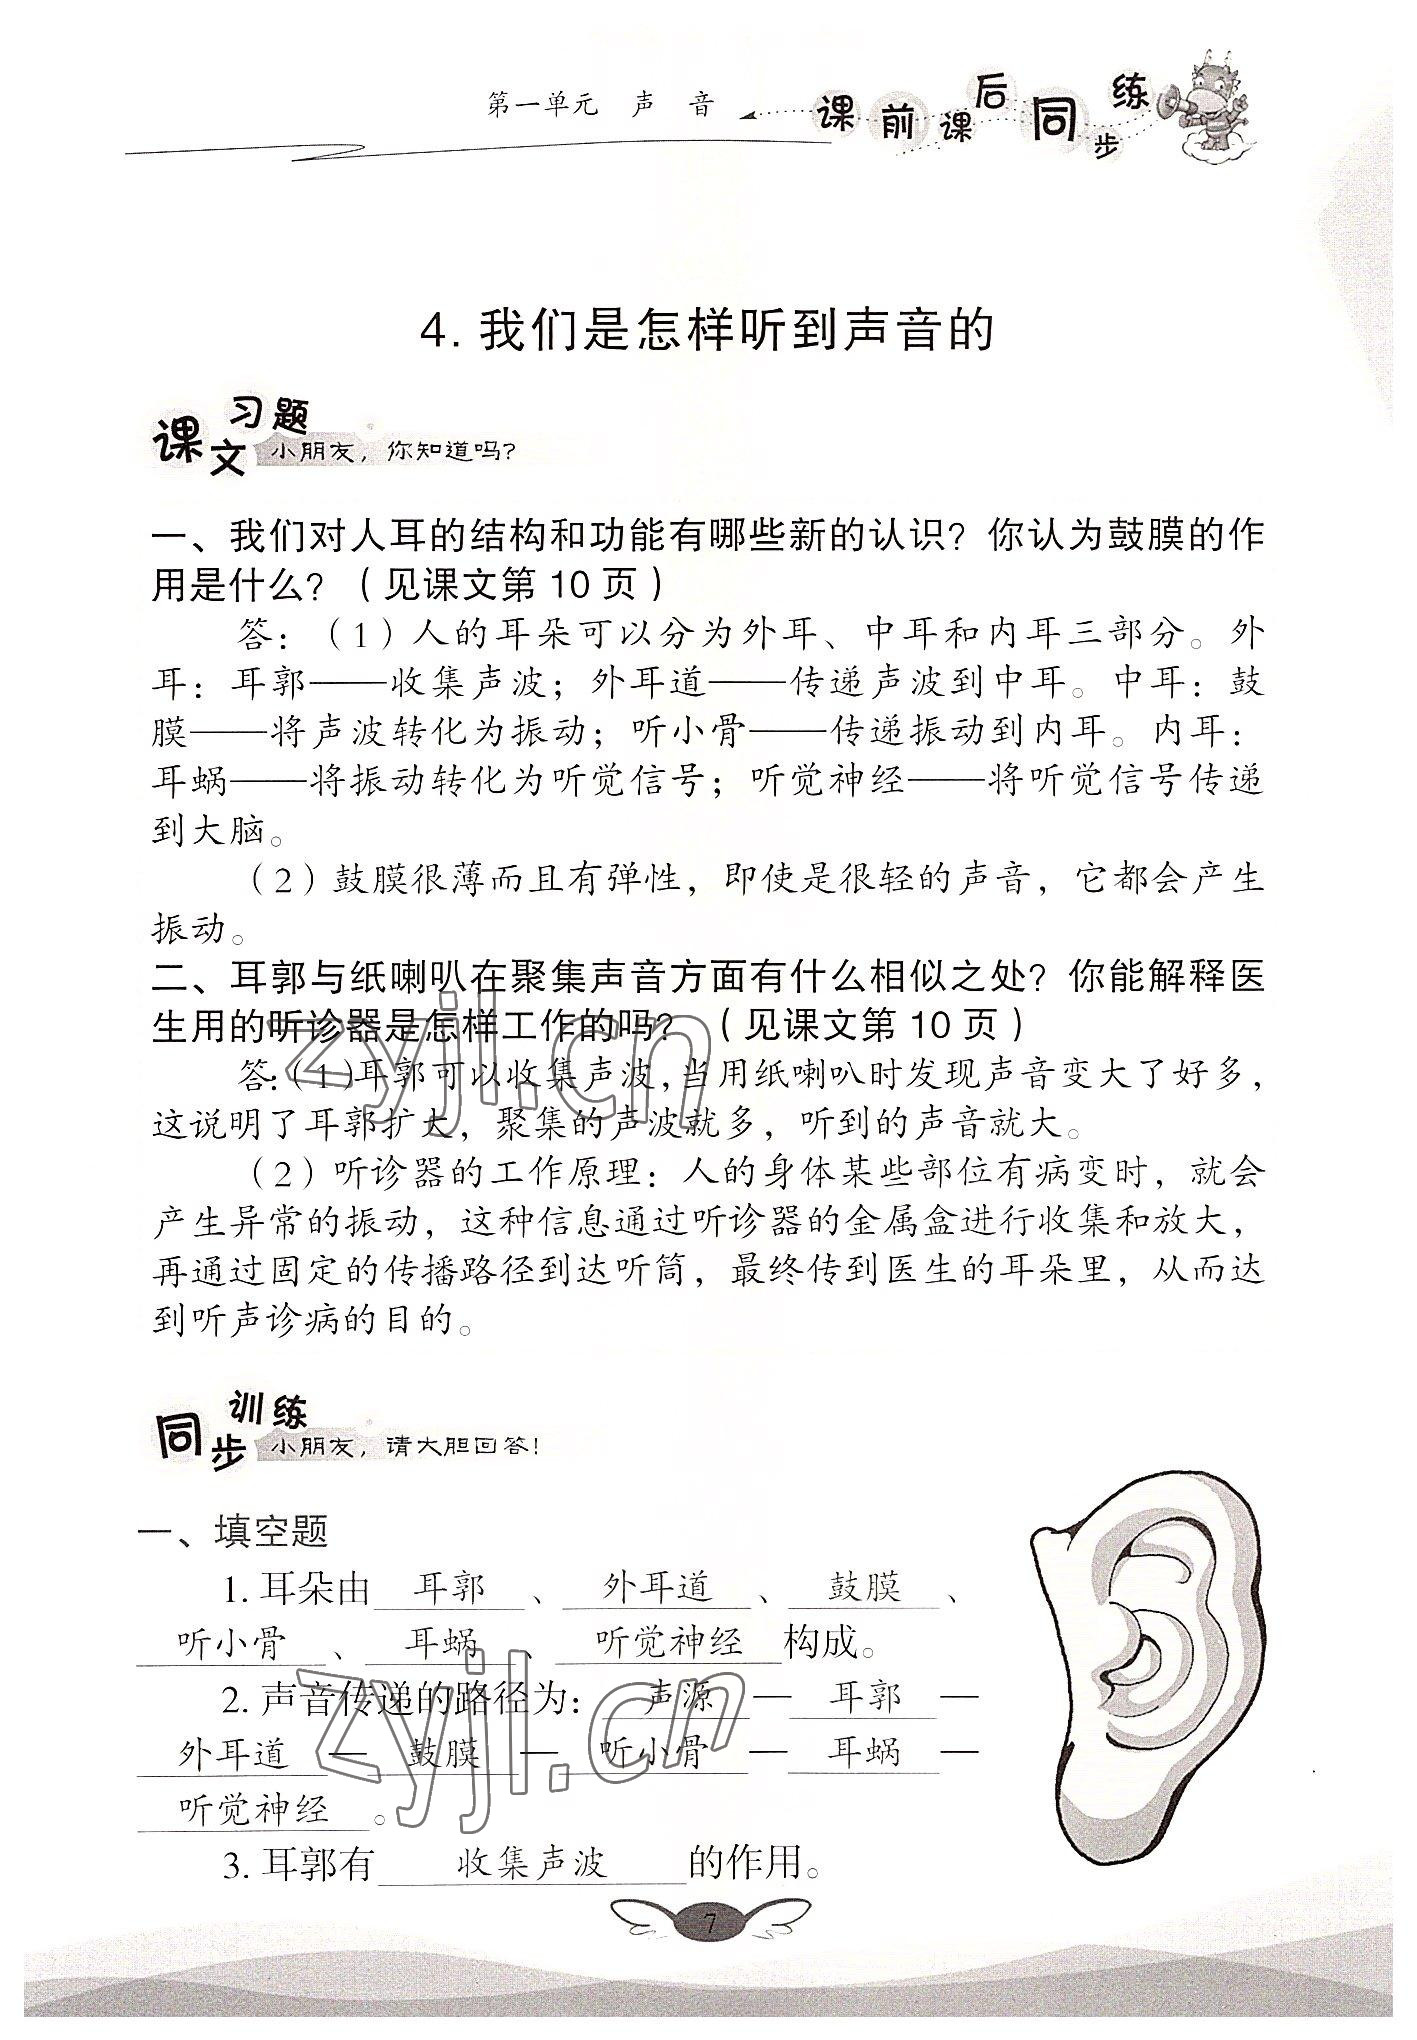 第一单元 声 音
课前课后同步练
4. 我们是怎样听到声音的
课文习题
小朋友，你知道吗？
一、我们对人耳的结构和功能有哪些新的认识？你认为鼓膜的作
用是什么？（见课文第 10 页）
答：（1）人的耳朵可以分为外耳、中耳和内耳三部分。外
耳：耳郭——收集声波；外耳道——传递声波到中耳。中耳：鼓
膜——将声波转化为振动；听小骨——传递振动到内耳。内耳：
耳蜗——将振动转化为听觉信号；听觉神经——将听觉信号传递
到大脑。
（2）鼓膜很薄而且有弹性，即使是很轻的声音，它都会产生
振动。
二、耳郭与纸喇叭在聚集声音方面有什么相似之处？你能解释医
生用的听诊器是怎样工作的吗？（见课文第 10 页）
答：（1）耳郭可以收集声波，当用纸喇叭时发现声音变大了好多，
这说明了耳郭扩大，聚集的声波就多，听到的声音就大。
（2）听诊器的工作原理：人的身体某些部位有病变时，就会
产生异常的振动，这种信息通过听诊器的金属盒进行收集和放大，
再通过固定的传播路径到达听筒，最终传到医生的耳朵里，从而达
到听声诊病的目的。
同步训练
小朋友，请大胆回答！
一、填空题
1. 耳朵由 耳郭 、 外耳道 、 鼓膜 、
听小骨 、 耳蜗 、 听觉神经 构成。
2. 声音传递的路径为： 声源 — 耳郭 —
外耳道 — 鼓膜 — 听小骨 — 耳蜗 —
听觉神经 。
3. 耳郭有 收集声波 的作用。
7
zyjl.cn
zyjl.cn